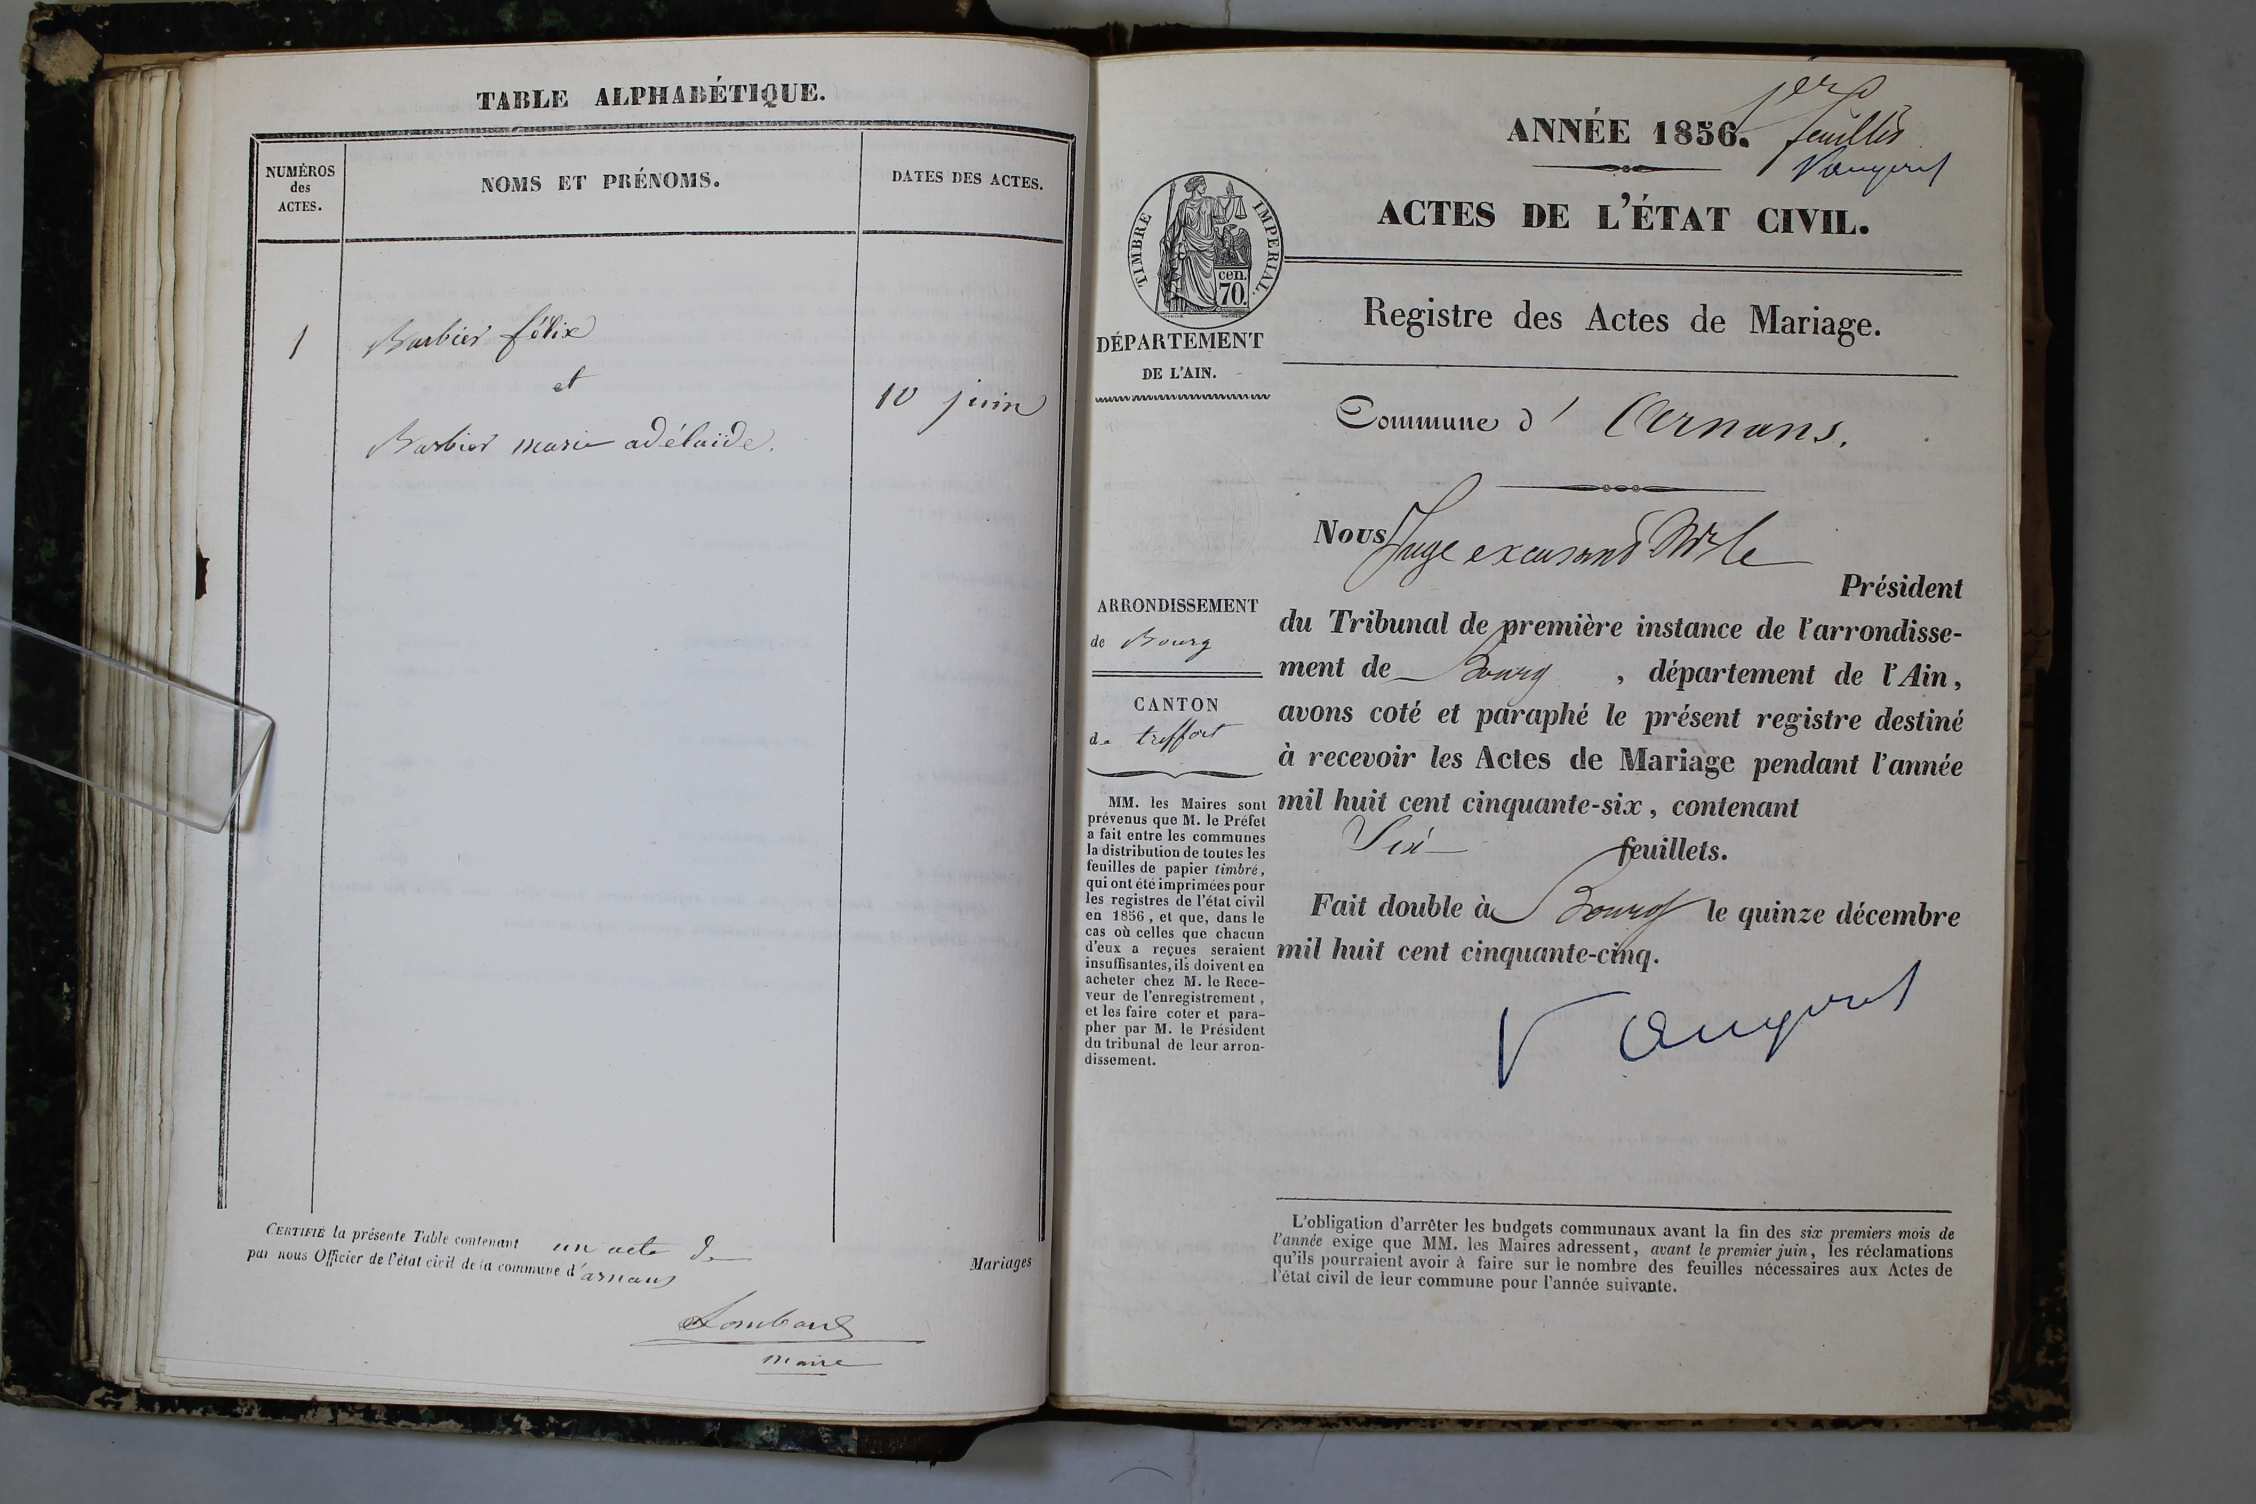 TABLE ALPHABÉTIQUE.
NUMÉROS
des
ACTES.
NOMS ET PRÉNOMS.
DATES DES ACTES.
1
Barbier félix
et
10 juin
Barbier marie adélaïde.
CERTIFIÉ la présente Table contenant un acte de
Mariages
par nous Officier de l'état civil de la commune d'arnans
Lombard
maire
1er
ANNÉE 1856. feuillet
Vaugeret
ACTES DE L'ÉTAT CIVIL.
TIMBRE IMPERIAL.
cen.
70.
Registre des Actes de Mariage.
DÉPARTEMENT
DE L'AIN.
Commune d' Arnans.
Nous Juge excusant Mr le
Président
du Tribunal de première instance de l'arrondisse-
ment de Bourg , département de l'Ain,
avons coté et paraphé le présent registre destiné
à recevoir les Actes de Mariage pendant l'année
mil huit cent cinquante-six, contenant
Six feuillets.
Fait double à Bourg le quinze décembre
mil huit cent cinquante-cinq.
Vaugeret
ARRONDISSEMENT
de Bourg
CANTON
de treffort
MM. les Maires sont
prévenus que M. le Préfet
a fait entre les communes
la distribution de toutes les
feuilles de papier timbré,
qui ont été imprimées pour
les registres de l'état civil
en 1856, et que, dans le
cas où celles que chacun
d'eux a reçues seraient
insuffisantes, ils doivent en
acheter chez M. le Rece-
veur de l'enregistrement,
et les faire coter et para-
pher par M. le Président
du tribunal de leur arron-
dissement.
L'obligation d'arrêter les budgets communaux avant la fin des six premiers mois de
l'année exige que MM. les Maires adressent, avant le premier juin, les réclamations
qu'ils pourraient avoir à faire sur le nombre des feuilles nécessaires aux Actes de
l'état civil de leur commune pour l'année suivante.